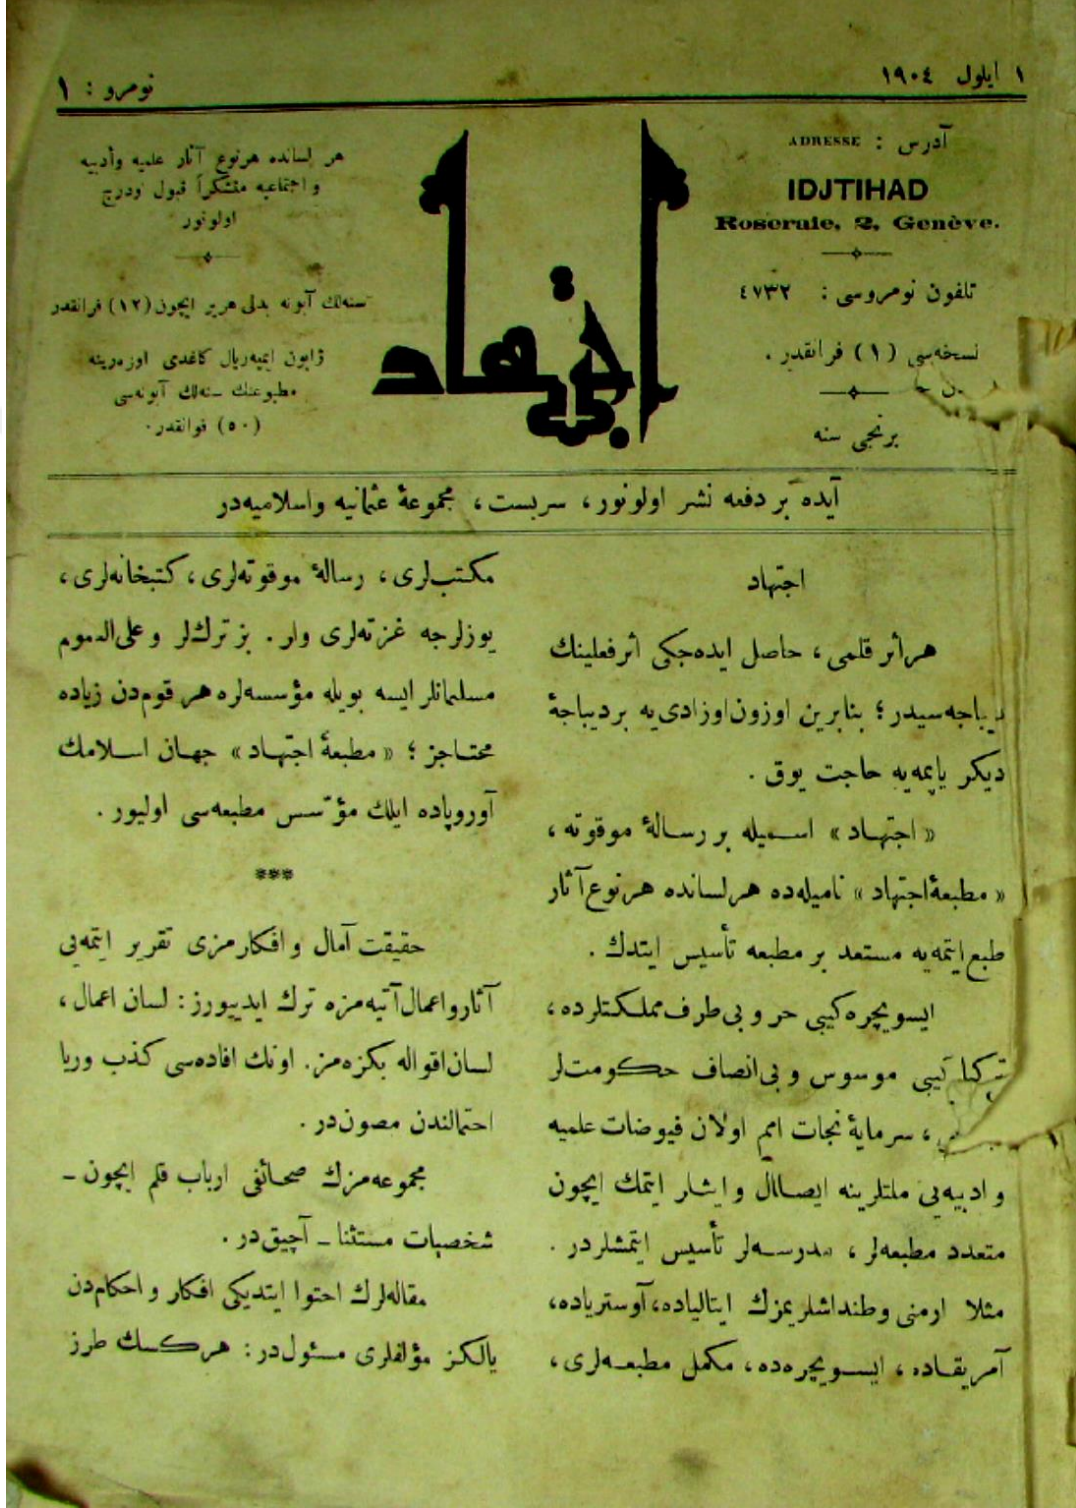 ١ ايلول ١٩٠٤
نومرو : ١
آدرس : ADRESSE
IDJTIHAD
Roseraie, 2, Genève.
تلفون نومروسى : ٤٧٣٢
نسخه‌سى (١) فرانقدر .
برنجى سنه
اجتهاد
هر لسانده هرنوع آثار علميه وأدبيه
و اجتماعيه متشكراً قبول ودرج
اولونور
سنه‌لك آبونه بدلى هرير ايچون (١٢) فرانقدر
ژاپون ايمپه‌ريال كاغدى اوزه‌رينه
مطبوعنك سنه‌لك آبونه‌سى
(٥٠) فرانقدر.
آيده بر دفعه نشر اولونور ، سربست ، مجموعهٔ عثمانيه واسلاميه‌در
اجتهاد
هرأثر قلمى ، حاصل ايده‌جكى أثرفعلينك
ديباجه‌سيدر ؛ بنابرين اوزون‌اوزادى‌يه برديباجهٔ
ديكر ياپمه‌يه حاجت يوق .
« اجتهاد » اسميله بر رسالهٔ موقوته ،
« مطبعهٔ اجتهاد » ناميله‌ده هرلسانده هرنوع آثار
طبع ايتمه‌يه مستعد بر مطبعه تأسيس ايتدك .
ايسويچره كيبى حر و بى‌طرف مملكتلرده ،
كيبى موسوس و بى‌انصاف حكومت‌لر
، سرمايهٔ نجات امم اولان فيوضات علميه
و ادبيه‌يى ملتلرينه ايصال و ايثار ايتمك ايچون
متعدد مطبعه‌لر ، مدرسه‌لر تأسيس ايتمشلردر .
مثلا ارمنى وطنداشلريمزك ايتالياده، آوسترياده،
آمريقاده ، ايسويچره‌ده ، مكمل مطبعه‌لرى ،
مكتب‌لرى ، رسالهٔ موقوته‌لرى ، كتبخانه‌لرى ،
يوزلرجه غزته‌لرى وار . بز ترك‌لر و على‌العموم
مسلمانلر ايسه بويله مؤسسه‌لره هر قوم‌دن زياده
محتاجز ؛ « مطبعهٔ اجتهاد » جهان اسلامك
آوروپاده ايلك مؤسس مطبعه‌سى اوليور .
***
حقيقت آمال و افكارمزى تقرير ايتمه‌يى
آثارواعمال آتيه‌مزه ترك ايدييورز : لسان اعمال ،
لسان‌اقواله بكزه‌مز. اونك افاده‌سى كذب وريا
احتمالندن مصون‌در .
مجموعه‌مزك صحائفى ارباب قلم ايچون ـ
شخصيات مستثنا ـ آچيق‌در .
مقاله‌لرك احتوا ايتديكى افكار و احكام‌دن
يالكز مؤلفلرى مسئول‌در : هركسك طرز